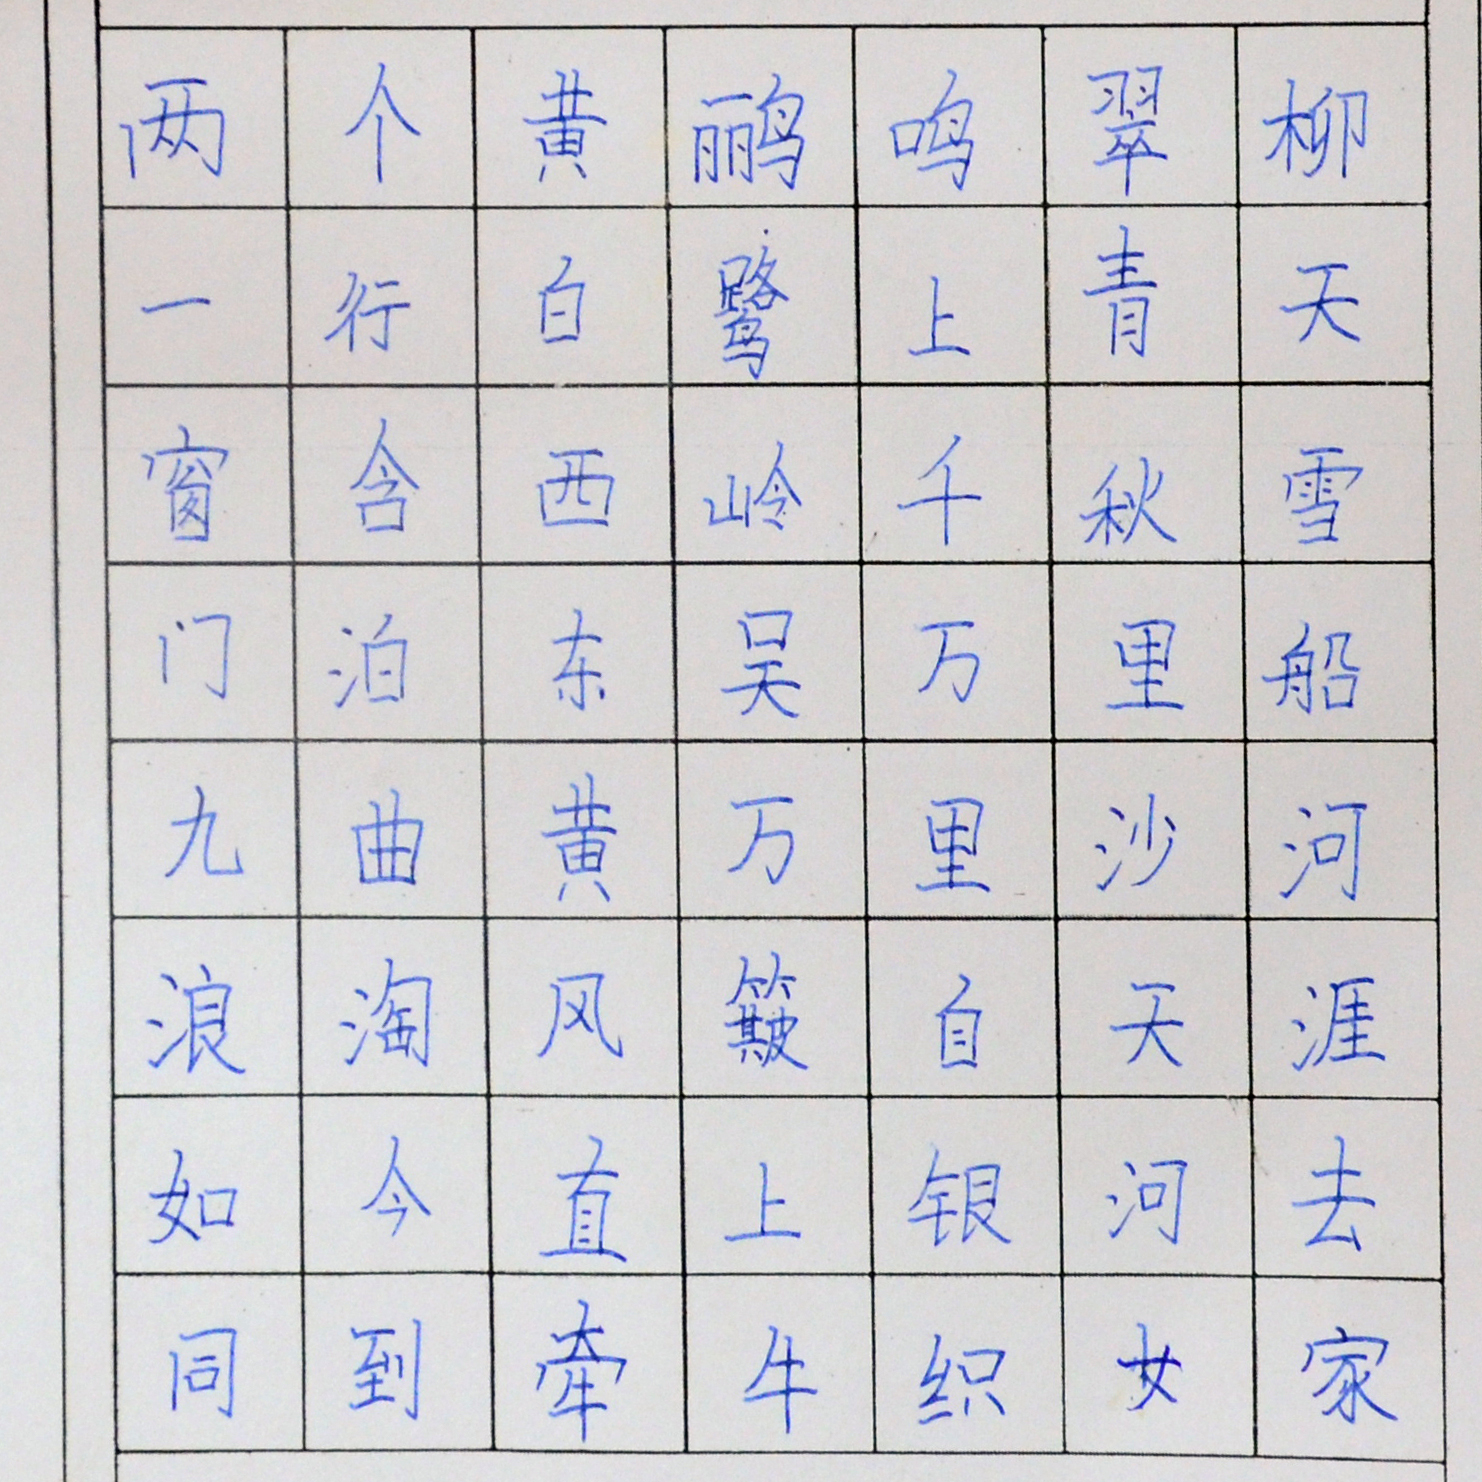 两个黄鹂鸣翠柳
一行白鹭上青天
窗含西岭千秋雪
门泊东吴万里船
九曲黄万里沙河
浪淘风簸自天涯
如今直上银河去
同到牵牛织女家